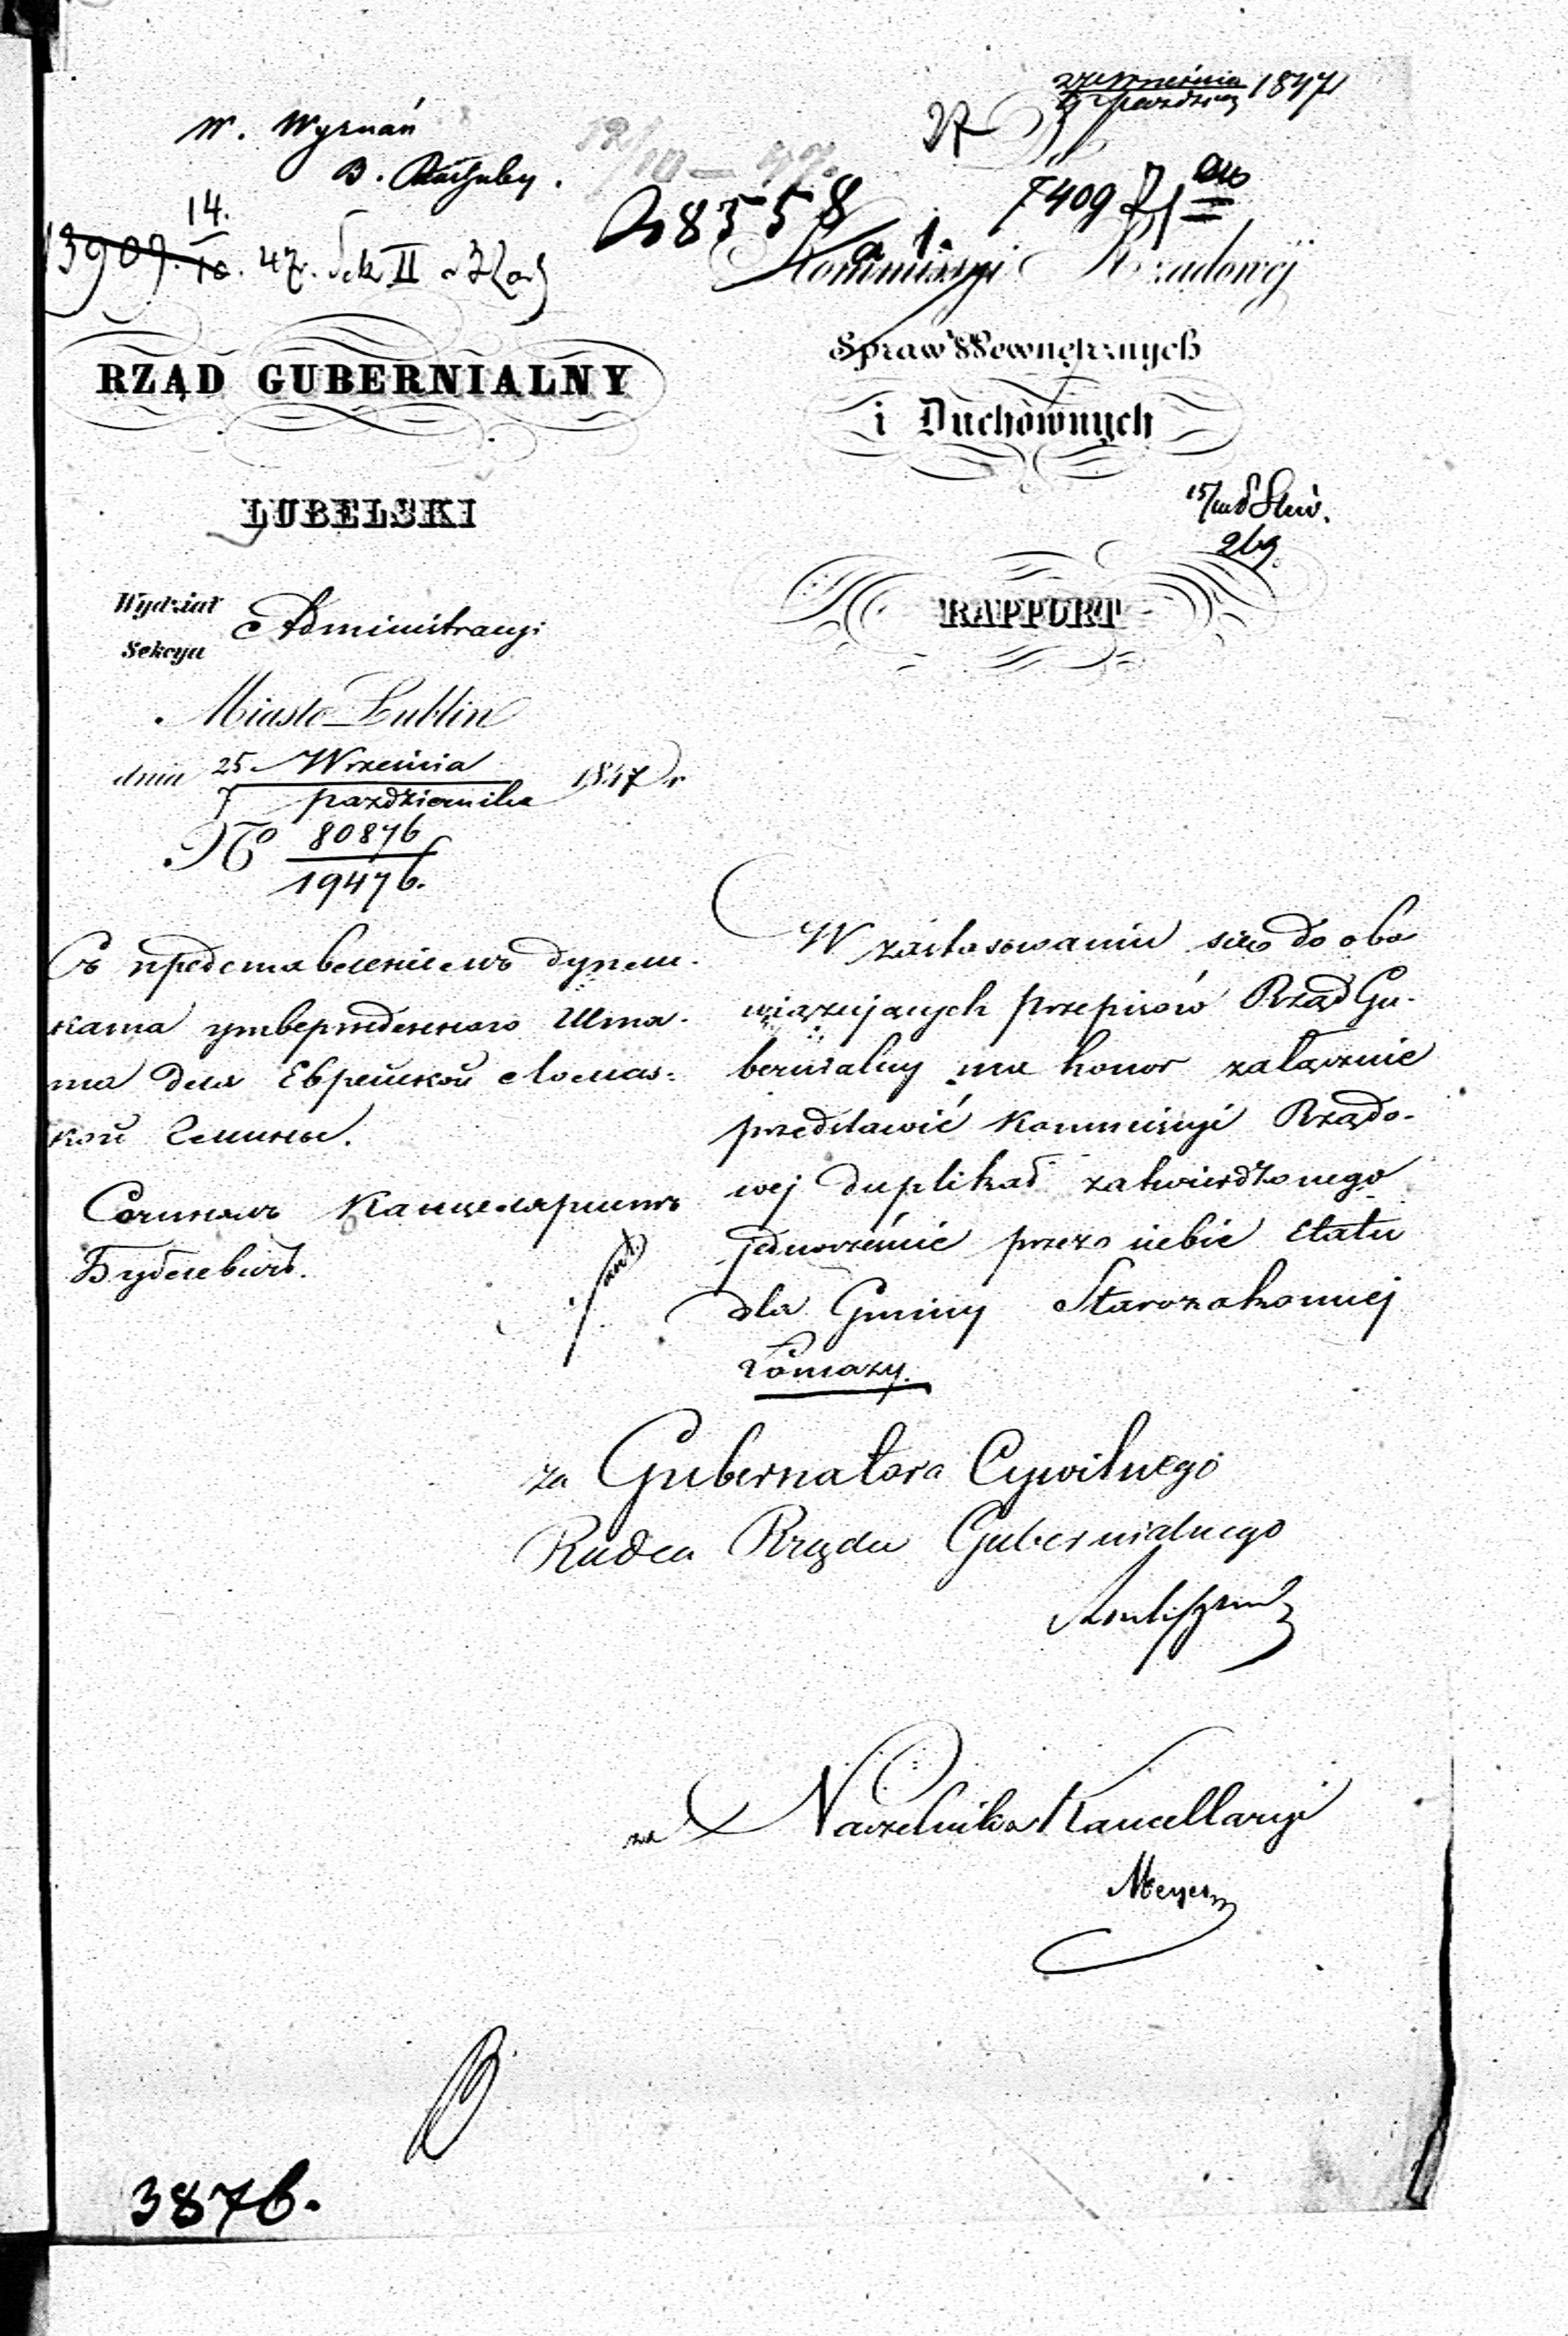 W. Wyznań
B.
12/10 – 47.
września 1847
27 październ
7409
38558
13909. 14./10. 47. Sek II
a 1.
Kommissyi Rządowéj
Spraw Wewnętrznych
i Duchownych
RZĄD GUBERNIALNY
LUBELSKI
269.
RAPPORT
Wydział Administracyi
Sekcya
Miasto Lublin
dnia 25 Września / 7 października 1847 r
No 80876 / 19476.
Съ представленіемъ дупли-
ката утвержденнаго Шта-
та для Еврейской Ломаз-
кой Гмины.
Сочинилъ Канцеляристъ
Бубелевичъ.
W zastosowaniu się do obo
wiązujących przepisów Rząd Gu-
bernialny ma honor załącznie
przedstawić Kommissyi Rządo-
wej duplikat zatwierdzonego
jednocześnie przez siebie Etatu
dla Gminy Starozakonnej
Łomazy.
za Gubernatora Cywilnego
Radca Rządu Gubernialnego
za Naczelnika Kancellaryi
Meyer
3876.